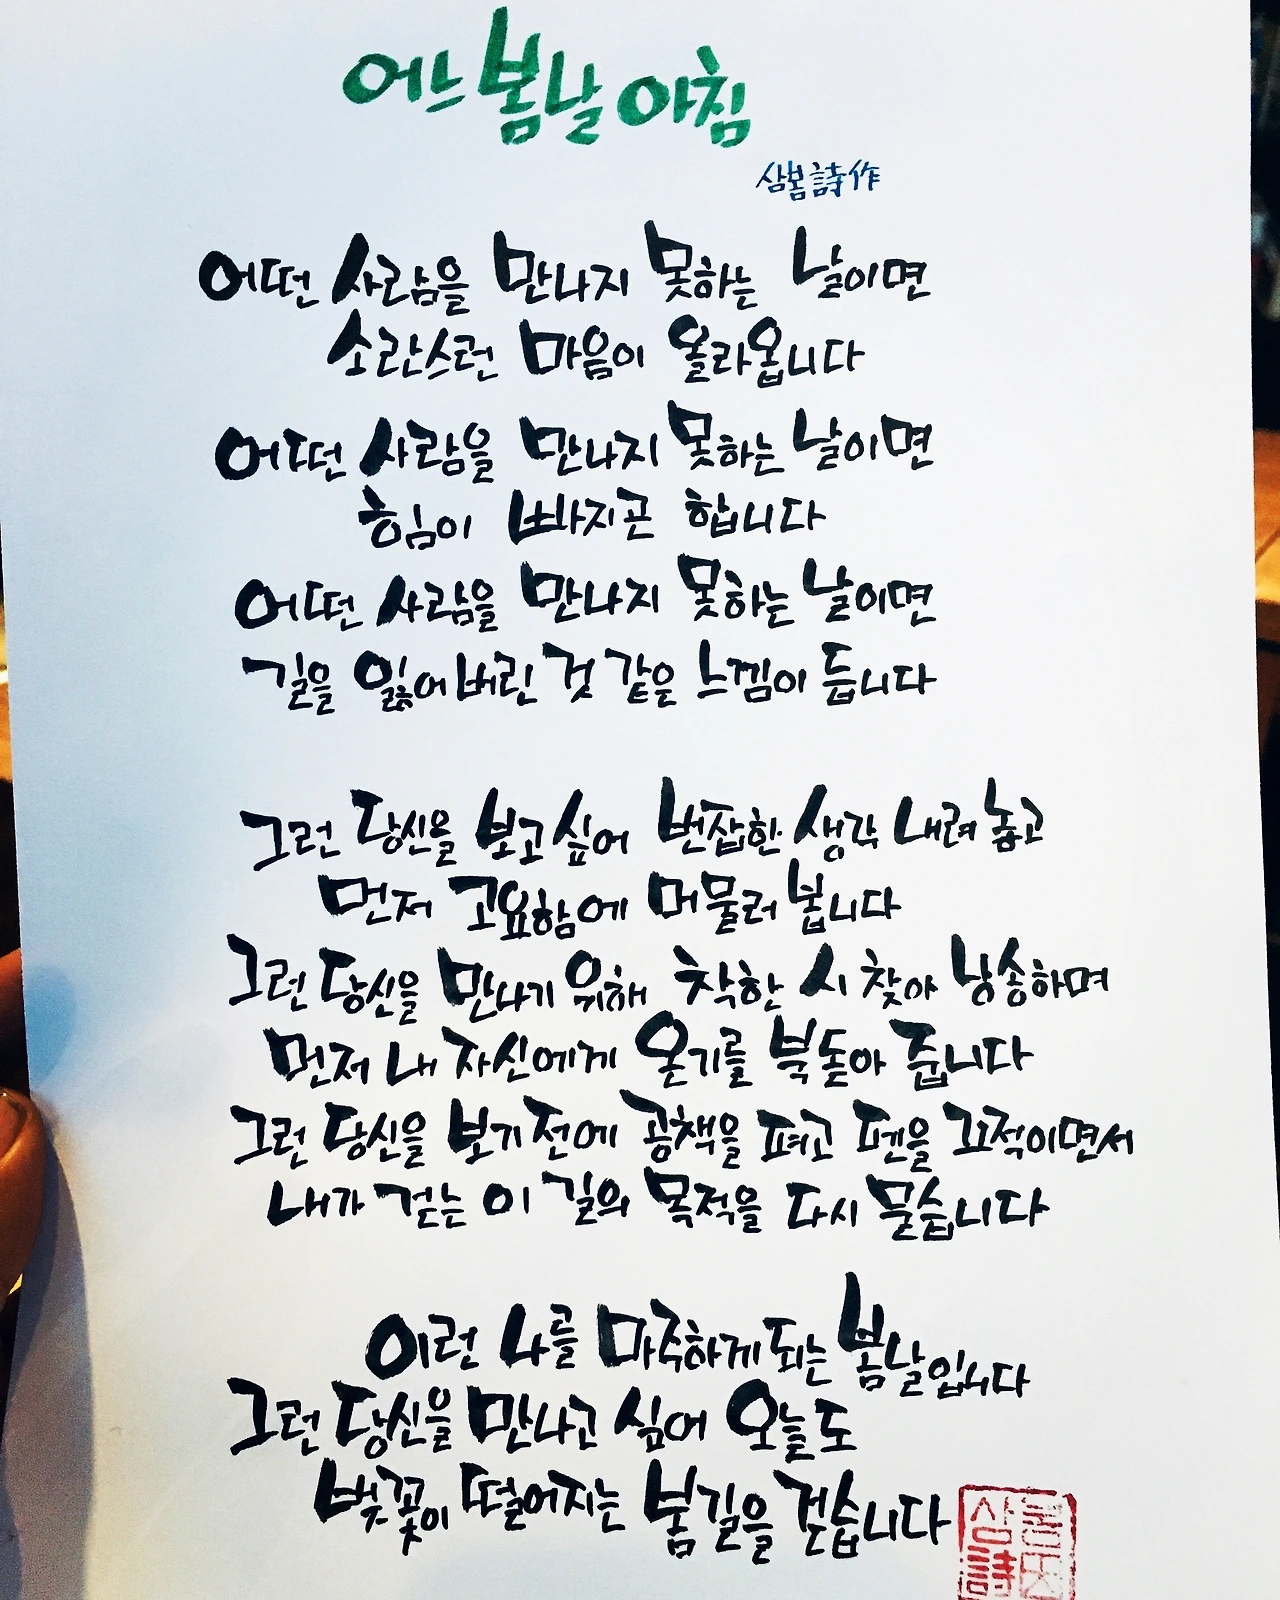 어느 봄날 아침
삼봄詩作
어떤 사람을 만나지 못하는 날이면
소란스런 마음이 올라옵니다
어떤 사람을 만나지 못하는 날이면
힘이 빠지곤 합니다
어떤 사람을 만나지 못하는 날이면
길을 잃어버린 것 같은 느낌이 듭니다
그런 당신을 보고싶어 번잡한 생각 내려놓고
먼저 고요함에 머물러 봅니다
그런 당신을 만나기 위해 착한 시 찾아 낭송하며
먼저 내 자신에게 온기를 북돋아 줍니다
그런 당신을 보기 전에 공책을 펴고 펜을 끄적이면서
내가 걷는 이 길의 목적을 다시 묻습니다
이런 나를 마주하게 되는 봄날입니다
그런 당신을 만나고 싶어 오늘도
벚꽃이 떨어지는 봄길을 걷습니다
삼
詩